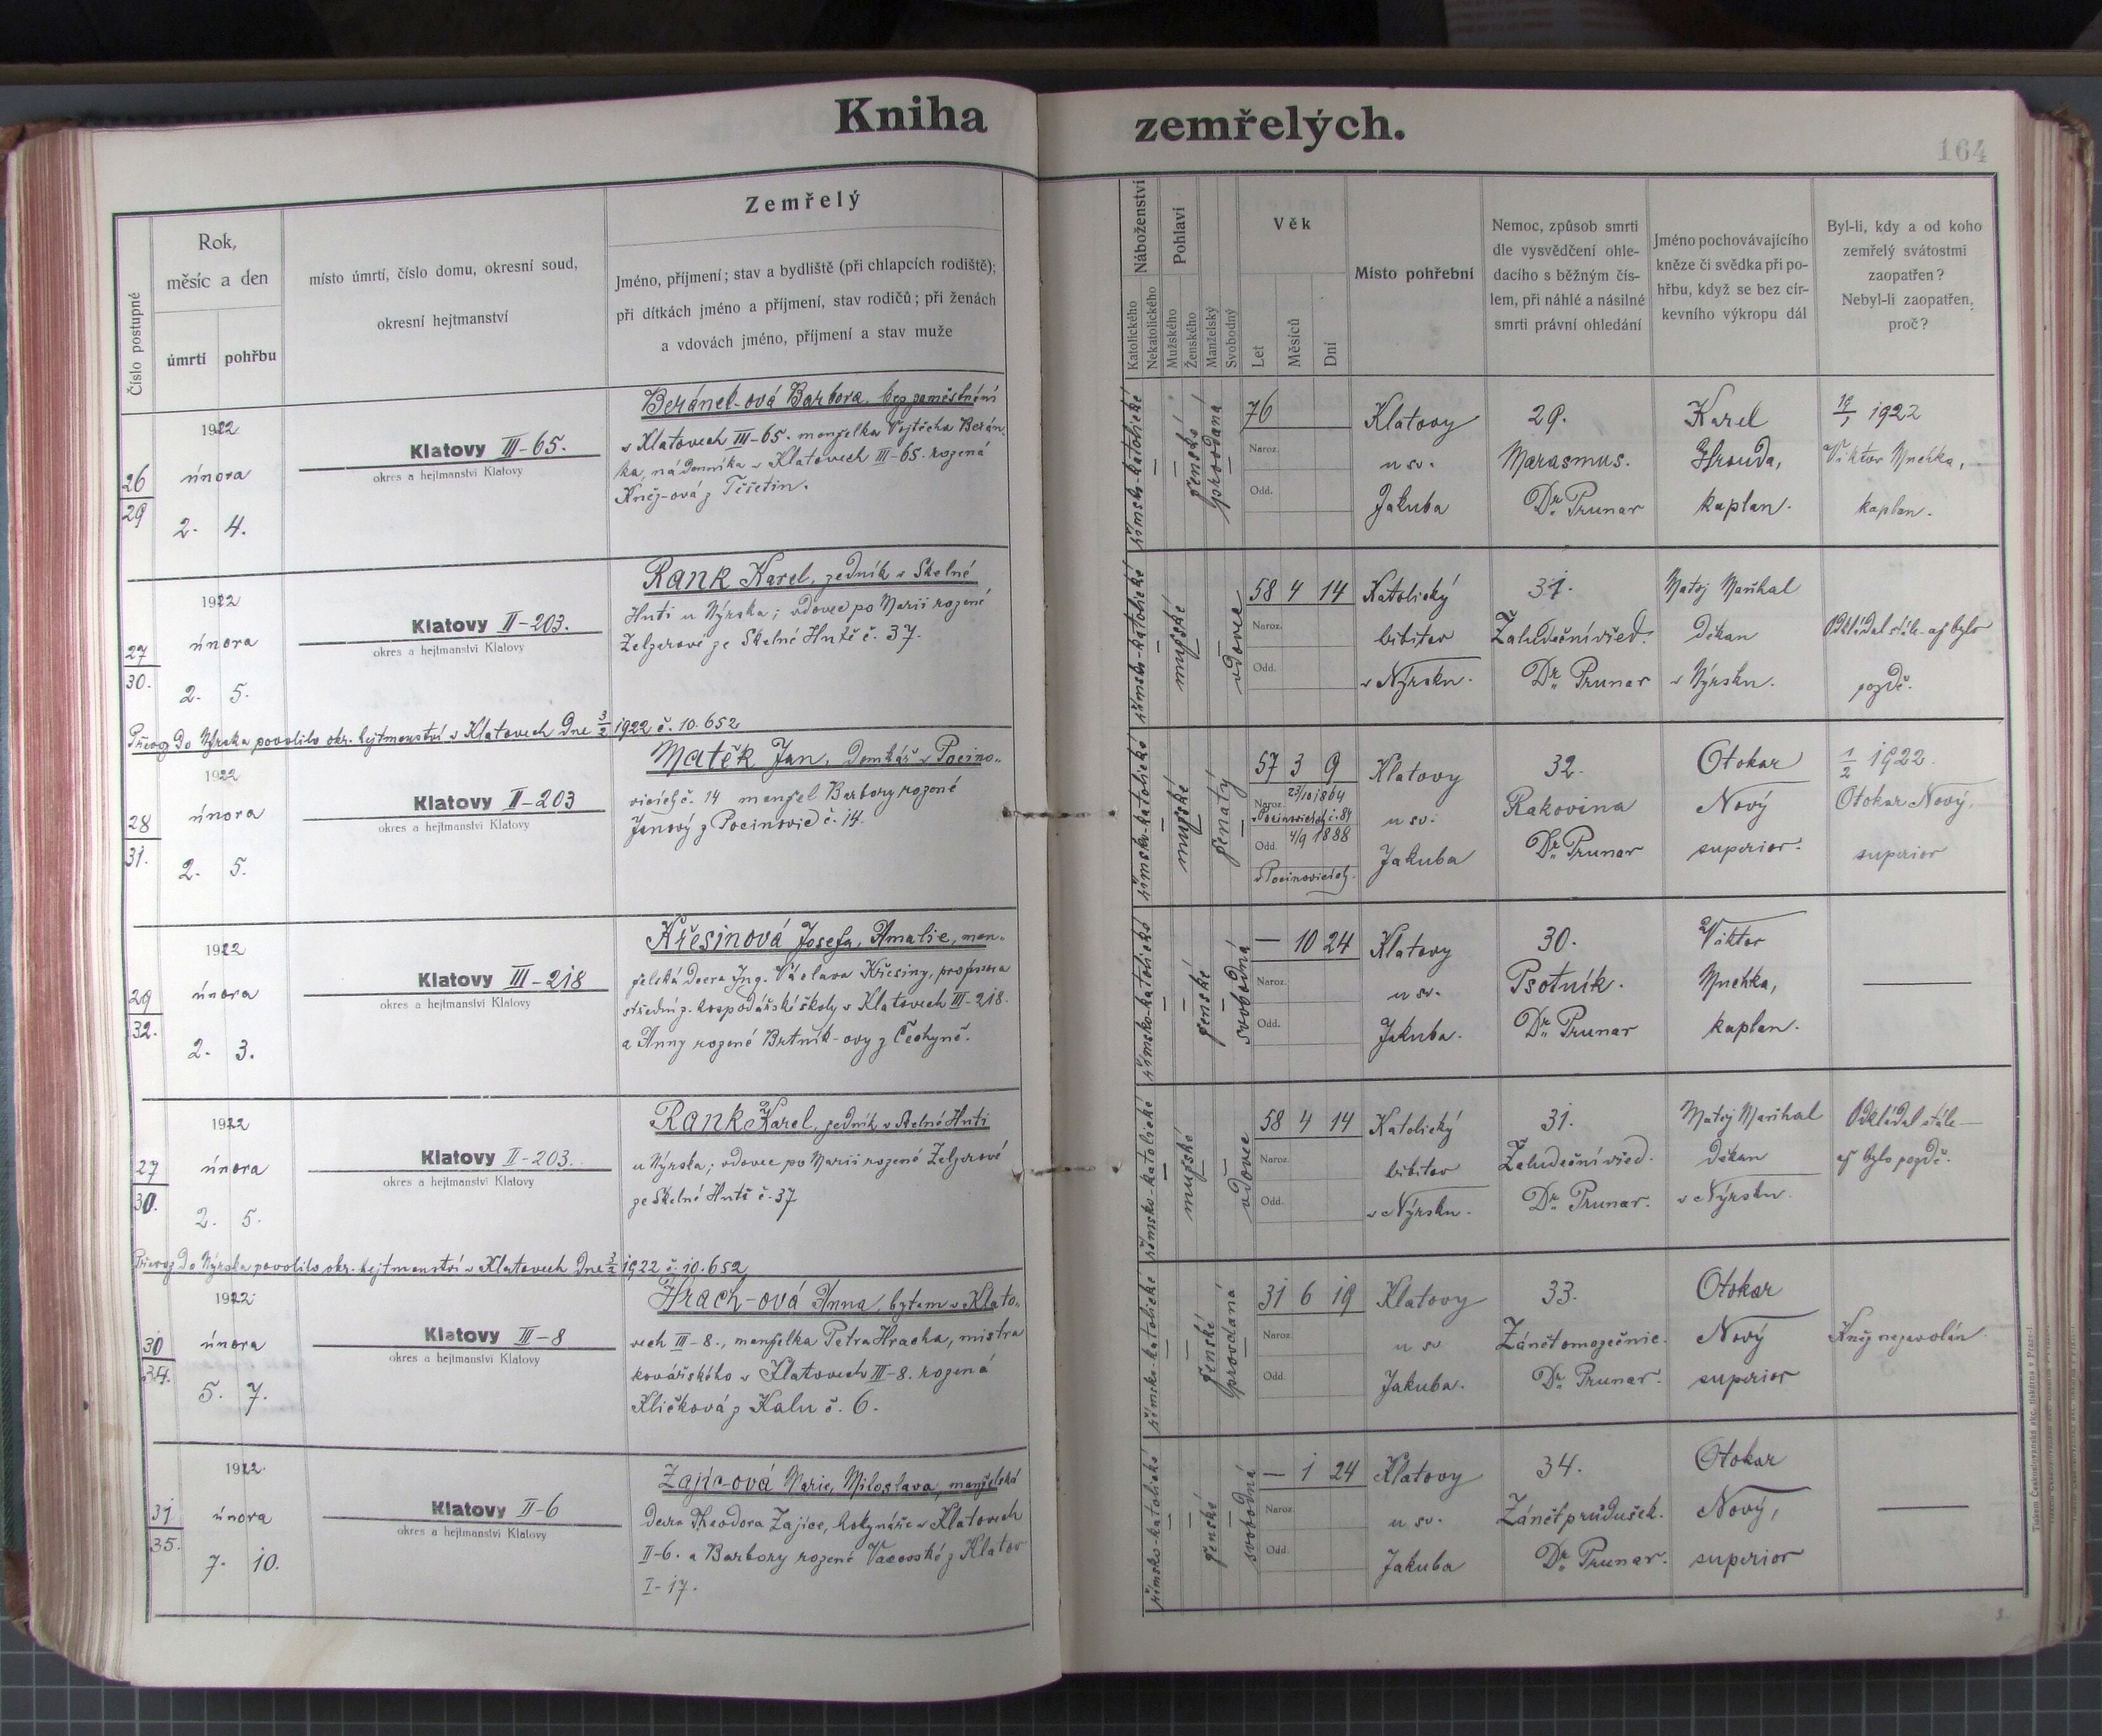 Kniha zemřelých.
164
Číslo postupné
Rok,
měsíc a den
úmrtí pohřbu
místo úmrtí, číslo domu, okresní soud,
okresní hejtmanství
Zemřelý
Jméno, příjmení; stav a bydliště (při chlapcích rodiště);
při dítkách jméno a příjmení, stav rodičů; při ženách
a vdovách jméno, příjmení a stav muže
Náboženství
Katolického
Nekatolického
Pohlaví
Mužského
Ženského
Manželský
Svobodný
Věk
Let
Měsíců
Dní
Místo pohřební
Nemoc, způsob smrti
dle vysvědčení ohle-
dacího s běžným čís-
lem, při náhlé a násilné
smrti právní ohledání
Jméno pochovávajícího
kněze či svědka při po-
hřbu, když se bez cír-
kevního výkropu dál
Byl-li, kdy a od koho
zemřelý svátostmi
zaopatřen?
Nebyl-li zaopatřen,
proč?
26
29
1922
února
2. 4.
Klatovy III-65.
okres a hejtmanství Klatovy
Beránek-ová Barbora, bez zaměstnání
v Klatovech III-65. manželka Vojtěcha Berán-
ka, nádenníka v Klatovech III-65. rozená
Kněz-ová z Těšetin.
římsko-katolické
ženské
provdaná
76
Naroz.
Odd.
Klatovy
u sv.
Jakuba
29.
Marasmus.
Dr. Prunar
Karel
Hrouda,
kaplan.
1922
Viktor Muchka,
kaplan.
27
30.
1922
února
2. 5.
Klatovy II-203.
okres a hejtmanství Klatovy
Rank Karel, zedník v Skelné
Huti u Nýrska; vdovec po Marii rozené
Zelzerové ze Skelné Hutě č. 37.
Převoz do Nýrska povolilo okr. hejtmanství v Klatovech dne 3/2 1922 č. 10.652
římsko-katolické
mužské
vdovec
58 4 14
Naroz.
Odd.
Katolický
hřbitov
v Nýrsku.
31.
Žaludeční vřed.
Dr. Prunar
Matěj Maršhal
děkan
v Nýrsku.
Odkládal stále až bylo
pozdě.
28
31.
1922
února
2. 5.
Klatovy II-203
okres a hejtmanství Klatovy
Matěk Jan, domkář v Pocino-
vicích č. 14 manžel Barbory rozené
Janový z Pocinovic č. 14.
římsko-katolické
mužské
ženatý
57 3 9
Naroz. 23/10 1864
v Pocinovicích č. 84
Odd. 4/9 1888
v Pocinovicích.
Klatovy
u sv.
Jakuba
32.
Rakovina
Dr. Prunar
Otokar
Nový
superior.
1/2 1922.
Otokar Nový,
superior
29
32.
1922
února
2. 3.
Klatovy III-218
okres a hejtmanství Klatovy
Křesinová Josefa, Amalie, man-
želská dcera Ing. Václava Křesiny, profesora
střední z. hospodářské školy v Klatovech III-218.
a Anny rozené Brtník-ovy z Čechyně.
římsko-katolické
ženské
svobodná
— 10 24
Naroz.
Odd.
Klatovy
u sv.
Jakuba.
30.
Psotník.
Dr. Prunar
Viktor
Muchka,
kaplan.
27
30.
1922
února
2. 5.
Klatovy II-203.
okres a hejtmanství Klatovy
Rank Karel, zedník v Skelné Huti
u Nýrska; vdovec po Marii rozené Zelzerové
ze Skelné Hutě č. 37
Převoz do Nýrska povolilo okr. hejtmanství v Klatovech dne 3/2 1922 č. 10.652
římsko-katolické
mužské
vdovec
58 4 14
Naroz.
Odd.
Katolický
hřbitov
v Nýrsku.
31.
Žaludeční vřed.
Dr. Prunar.
Matěj Maršhal
děkan
v Nýrsku.
Odkládal stále—
až bylo pozdě.
30
34.
1922
února
5. 7.
Klatovy III-8
okres a hejtmanství Klatovy
Hrach-ová Anna, bytem v Klato-
vech III-8., manželka Petra Hracha, mistra
kovářského v Klatovech III-8. rozená
Kličková z Kalu č. 6.
římsko-katolické
ženské
provdaná
31 6 19
Naroz.
Odd.
Klatovy
u sv
Jakuba.
33.
Zánět omozečnic.
Dr. Prunar.
Otokar
Nový
superior
Kněz nezavolán
31
35.
1922
února
7. 10.
Klatovy II-6
okres a hejtmanství Klatovy
Zajíc-ová Marie, Miloslava, manželská
dcera Theodora Zajíce, hokynáře v Klatovech
II-6. a Barbory rozené Vacovské z Klatov
I-17.
římsko-katolické
ženské
svobodná
— 1 24
Naroz.
Odd.
Klatovy
u sv.
Jakuba
34.
Zánět průdušek.
Dr. Prunar.
Otokar
Nový,
superior
Tiskem Československé akc. tiskárny v Praze-I